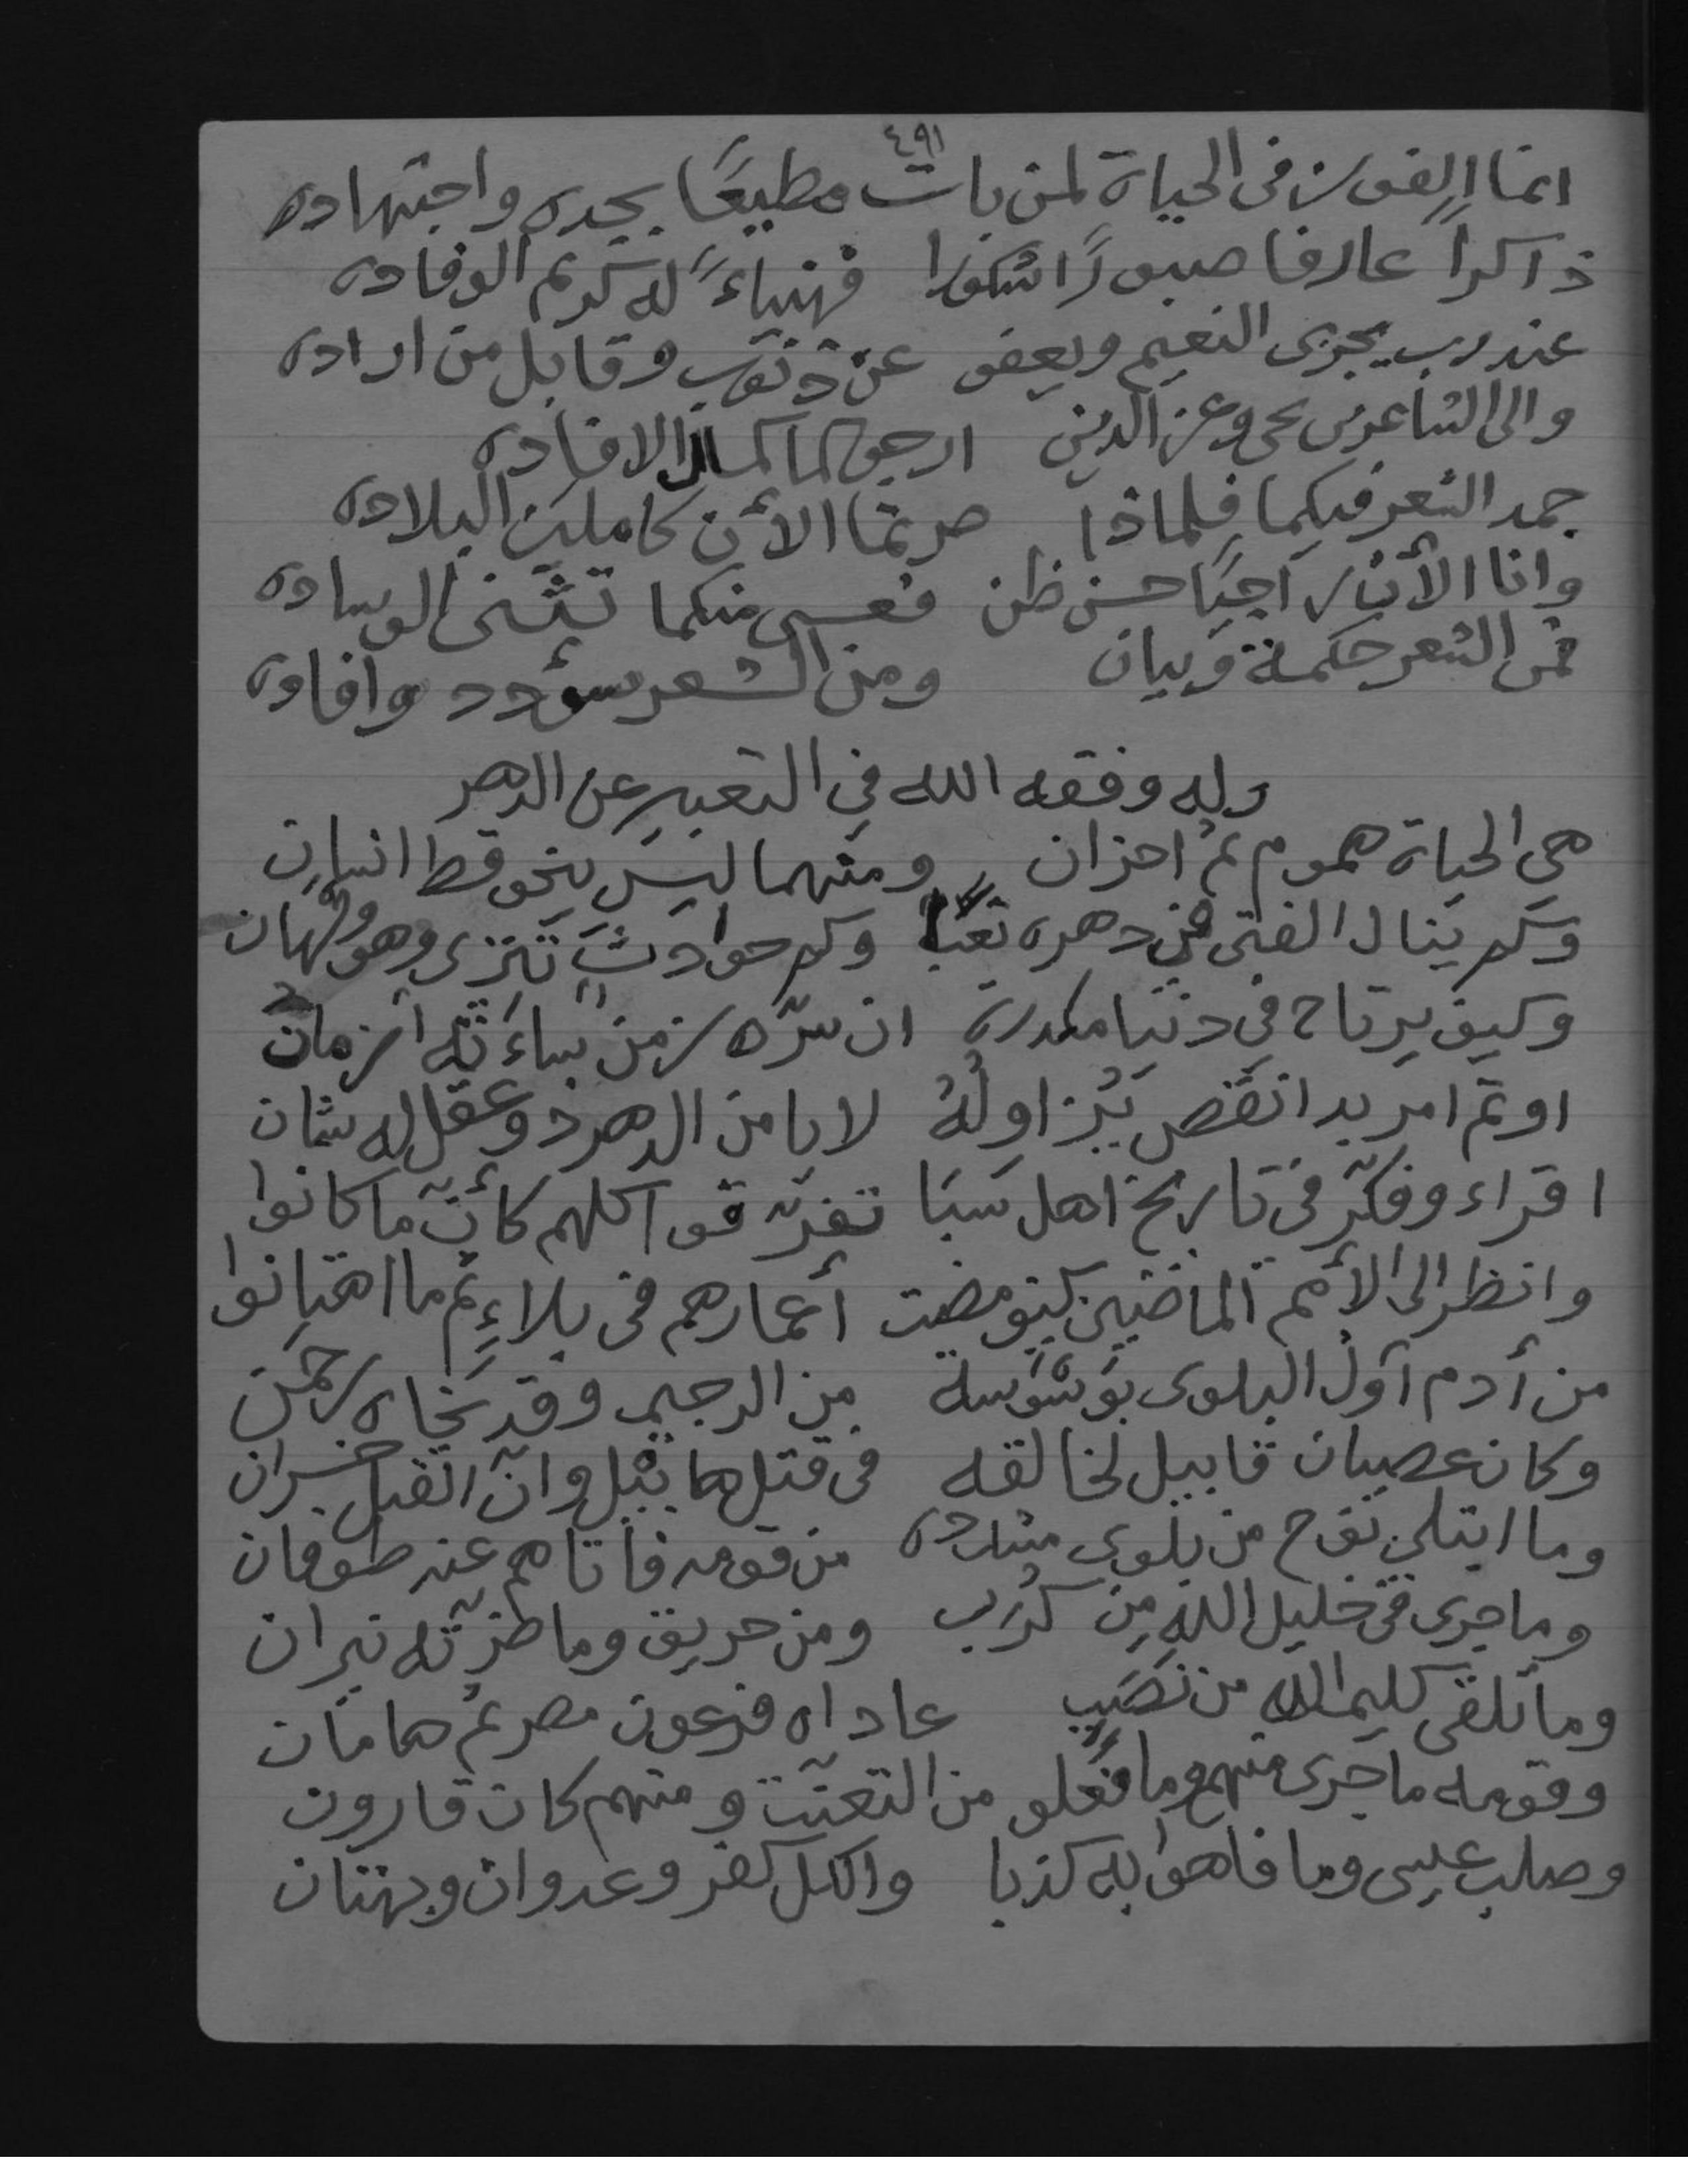 ٤٩١
انما الفوز فى الحياة لمن بات مطيعًا بجده واجتهاده
ذاكراً عارفا صبورًا شكورا فهنياءً له كريم الوفاده
عند رب يجزى النعيم ويعفو عن ذنوب وقابل من اراده
والى الشاعرين يحى وعز الدين ارجو لما كمال الافاده
جمد الشعر فيكما فلماذا صرتما الأن كاملين البلاده
وانا الأن راجيًا حسن ظن فعسى منكما تثنى الوساده
فمن الشعر حكمة وبيان ومن الشعر سؤدد وافاده
وله وفقه الله في التعبير عن الدهر
هي الحياة هموم ثم احزان ومنهما ليس ينجو قط انسان
وكم ينال الفتى في دهره تعبًا وكم حوادث تترى وهو ولهان
وكيف يرتاح في دنيا مكدرة ان سرّه زمن ساءَته أزمان
او تم امر بدا نقص يُزاولُهُ لا يامن الدهر ذو عقل له شان
اقراء وفكّر فى تاريخ اهل سبَا تفرّقوا كلهم كأنّ ما كانوا
وانظر الى الأمم الماضين كيف مضت أعمارهم فى بلاءٍ ثم ما اهتانوا
من أدم أول البلوى بوَسْوَسة من الرجيم وقد نجاه رحمن
وكان عصيان قابيل لخالقه فى قتل هابيل وانّ القتل خسران
وما ابتلي نوح من بلوى مشدده من قومه فأتاهم عنه طوفان
وما جرى فى خليل الله مِن كُرَب ومن حريق وما ضرّته نيران
وما تلقى كليم الله من نصَبٍ عاداه فرعون مصر ثم هامان
وقومه ما جرى منهم وما فعلو من التعنّت ومنهم كان قارون
وصلب عيسى وما فاهوا به كذبا والكل كفر وعدوان وبهتان